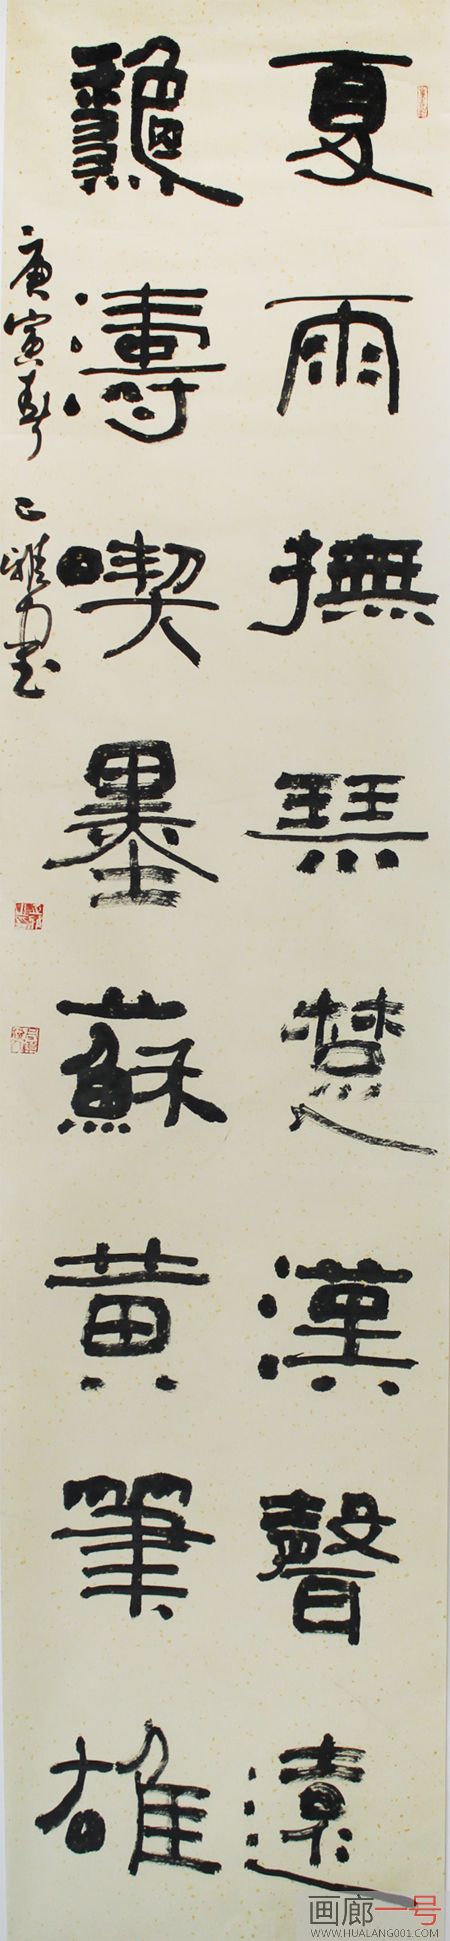 夏雨撫琴楚漢聲遠
濤喫墨蘇黃筆雄
庚寅春
画廊一号
WWW.HUALANG001.COM